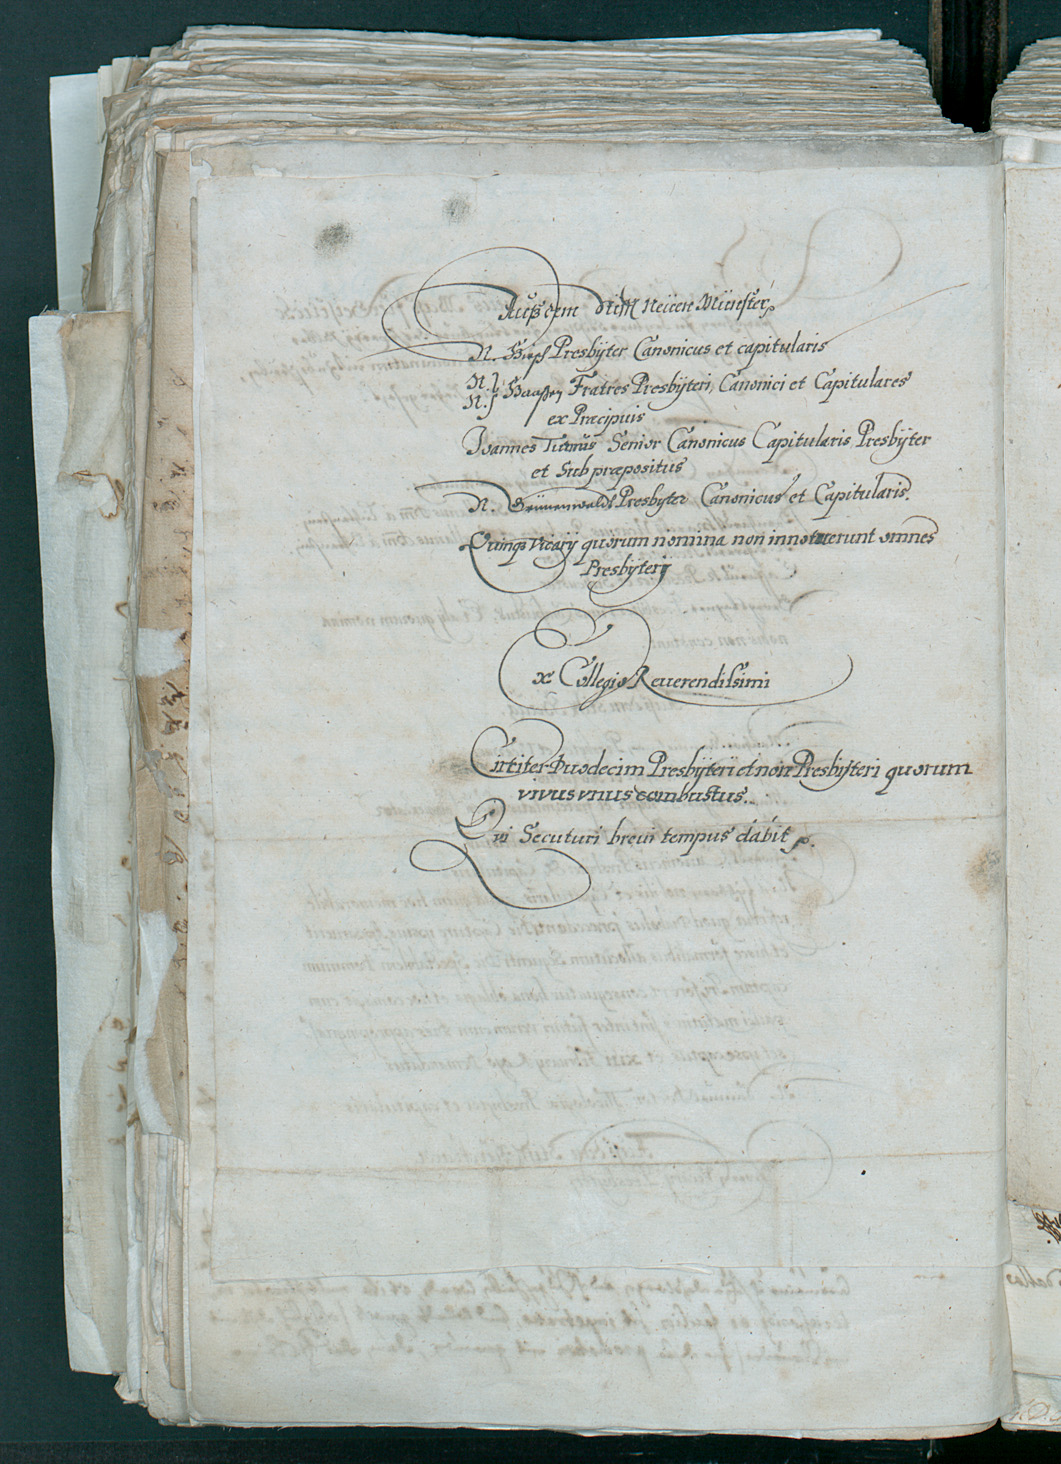 Außdem Stifft Neüen Münster
N. Presbÿter Canonicus et capitularis
N. }
N. } Fratres Presbÿteri, Canonici et Capitulares
ex Præcipuis
Joannes Senior Canonicus Capitularis Presbÿter
et Subpræpositus
N. Grünenwaldt Presbyter Canonicus et Capitularis.
Quinqȝ Vicarÿ quorum nomina non innotuerunt omnes
Presbÿterÿ
Ex Collegio Reuerendissimi
Circiter Duodecim Presbÿteri et non Presbÿteri quorum
vivus vnus combustus.
Qui Secuturi breui tempus dabit